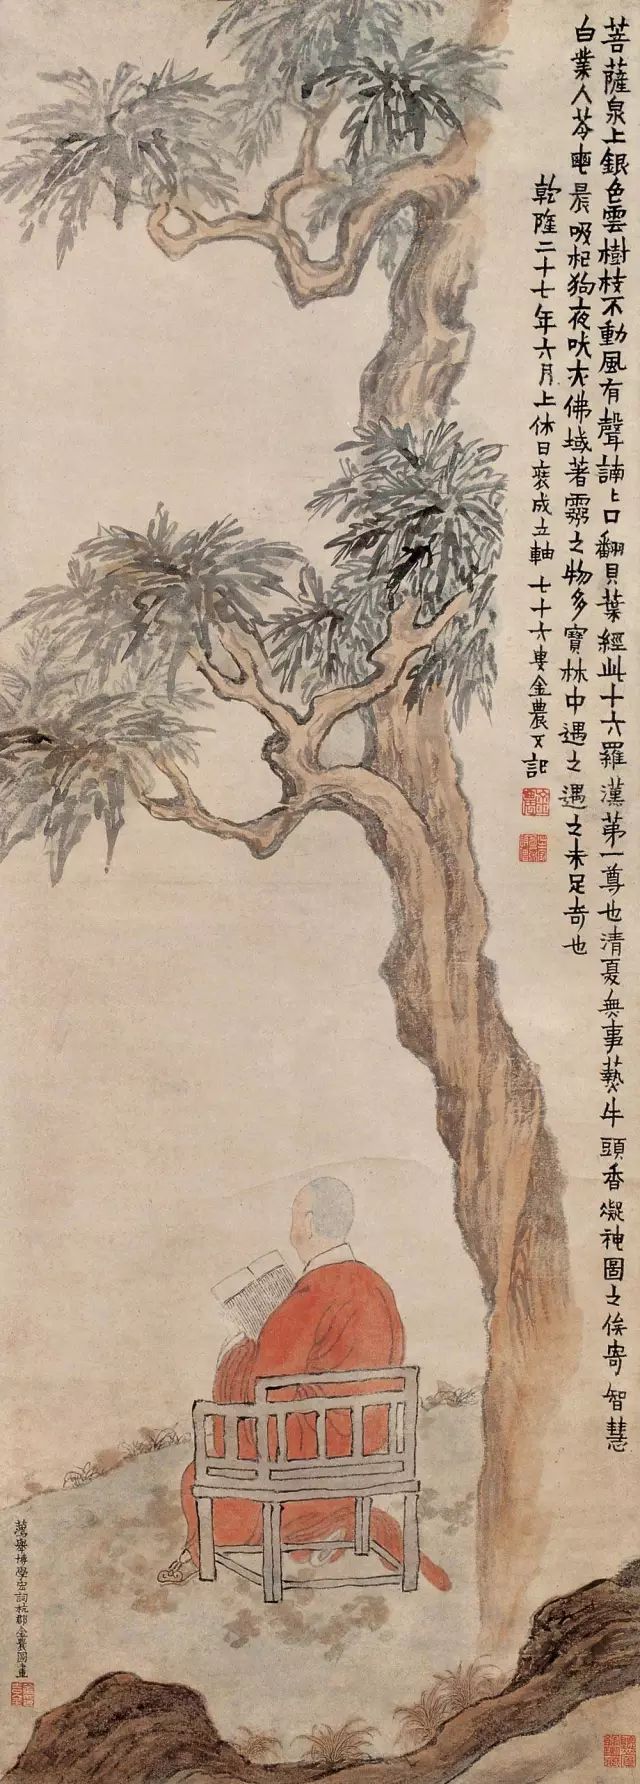 菩薩泉上銀色雲樹枝不動風有聲誦上口翻貝葉經此十六羅漢第一尊也清夏無事爇牛頭香凝神圖之俟寄智慧
白業人苓庵晨吸杞狗夜吠大佛域著靈之物多寶林中遇之遇之未足奇也
乾隆二十七年六月上休日裝成立軸七十六叟金農又記
薦舉博學宏詞杭郡金農圖畫